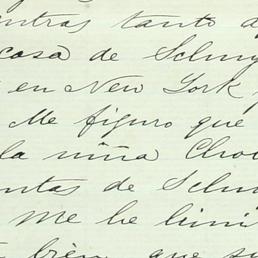 ntras tanto a
casa de Schuy
en New York y
Me figuro que
la niña Choc
ntas de Schu
Me he limi
bien que su